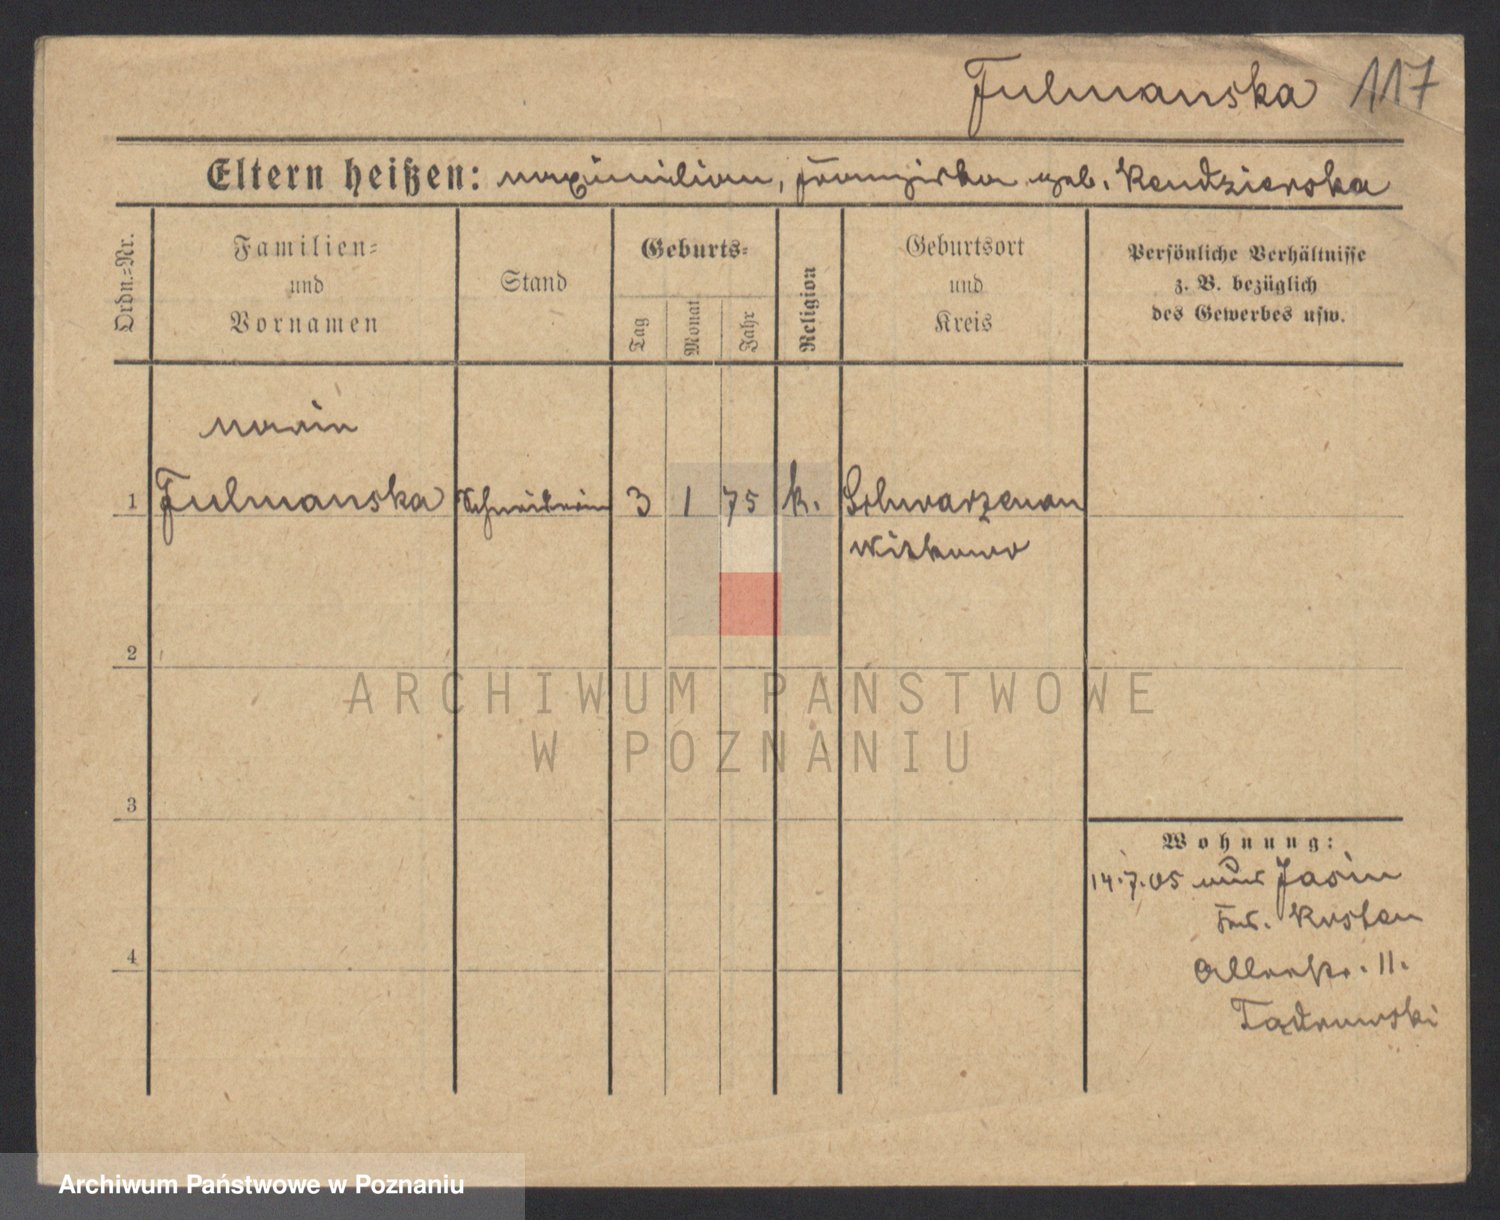 Fulmanska 117
Eltern heißen: Maximilian, Franziska geb. Kendzierska
Ordn.=Nr.
Familien=
und
Vornamen
Stand
Geburts=
Tag
Monat
Jahr
Religion
Geburtsort
und
Kreis
Persönliche Verhältnisse
z. B. bezüglich
des Gewerbes usw.
Maria
1 Fulmanska Schneiderin 3 1 75 k. Schwarzenau
Witkowo
2
ARCHIWUM PAŃSTWOWE
W POZNANIU
3
Wohnung:
14.7.05 aus Jasin
Krs. Kosten
11.
4
Archiwum Państwowe w Poznaniu